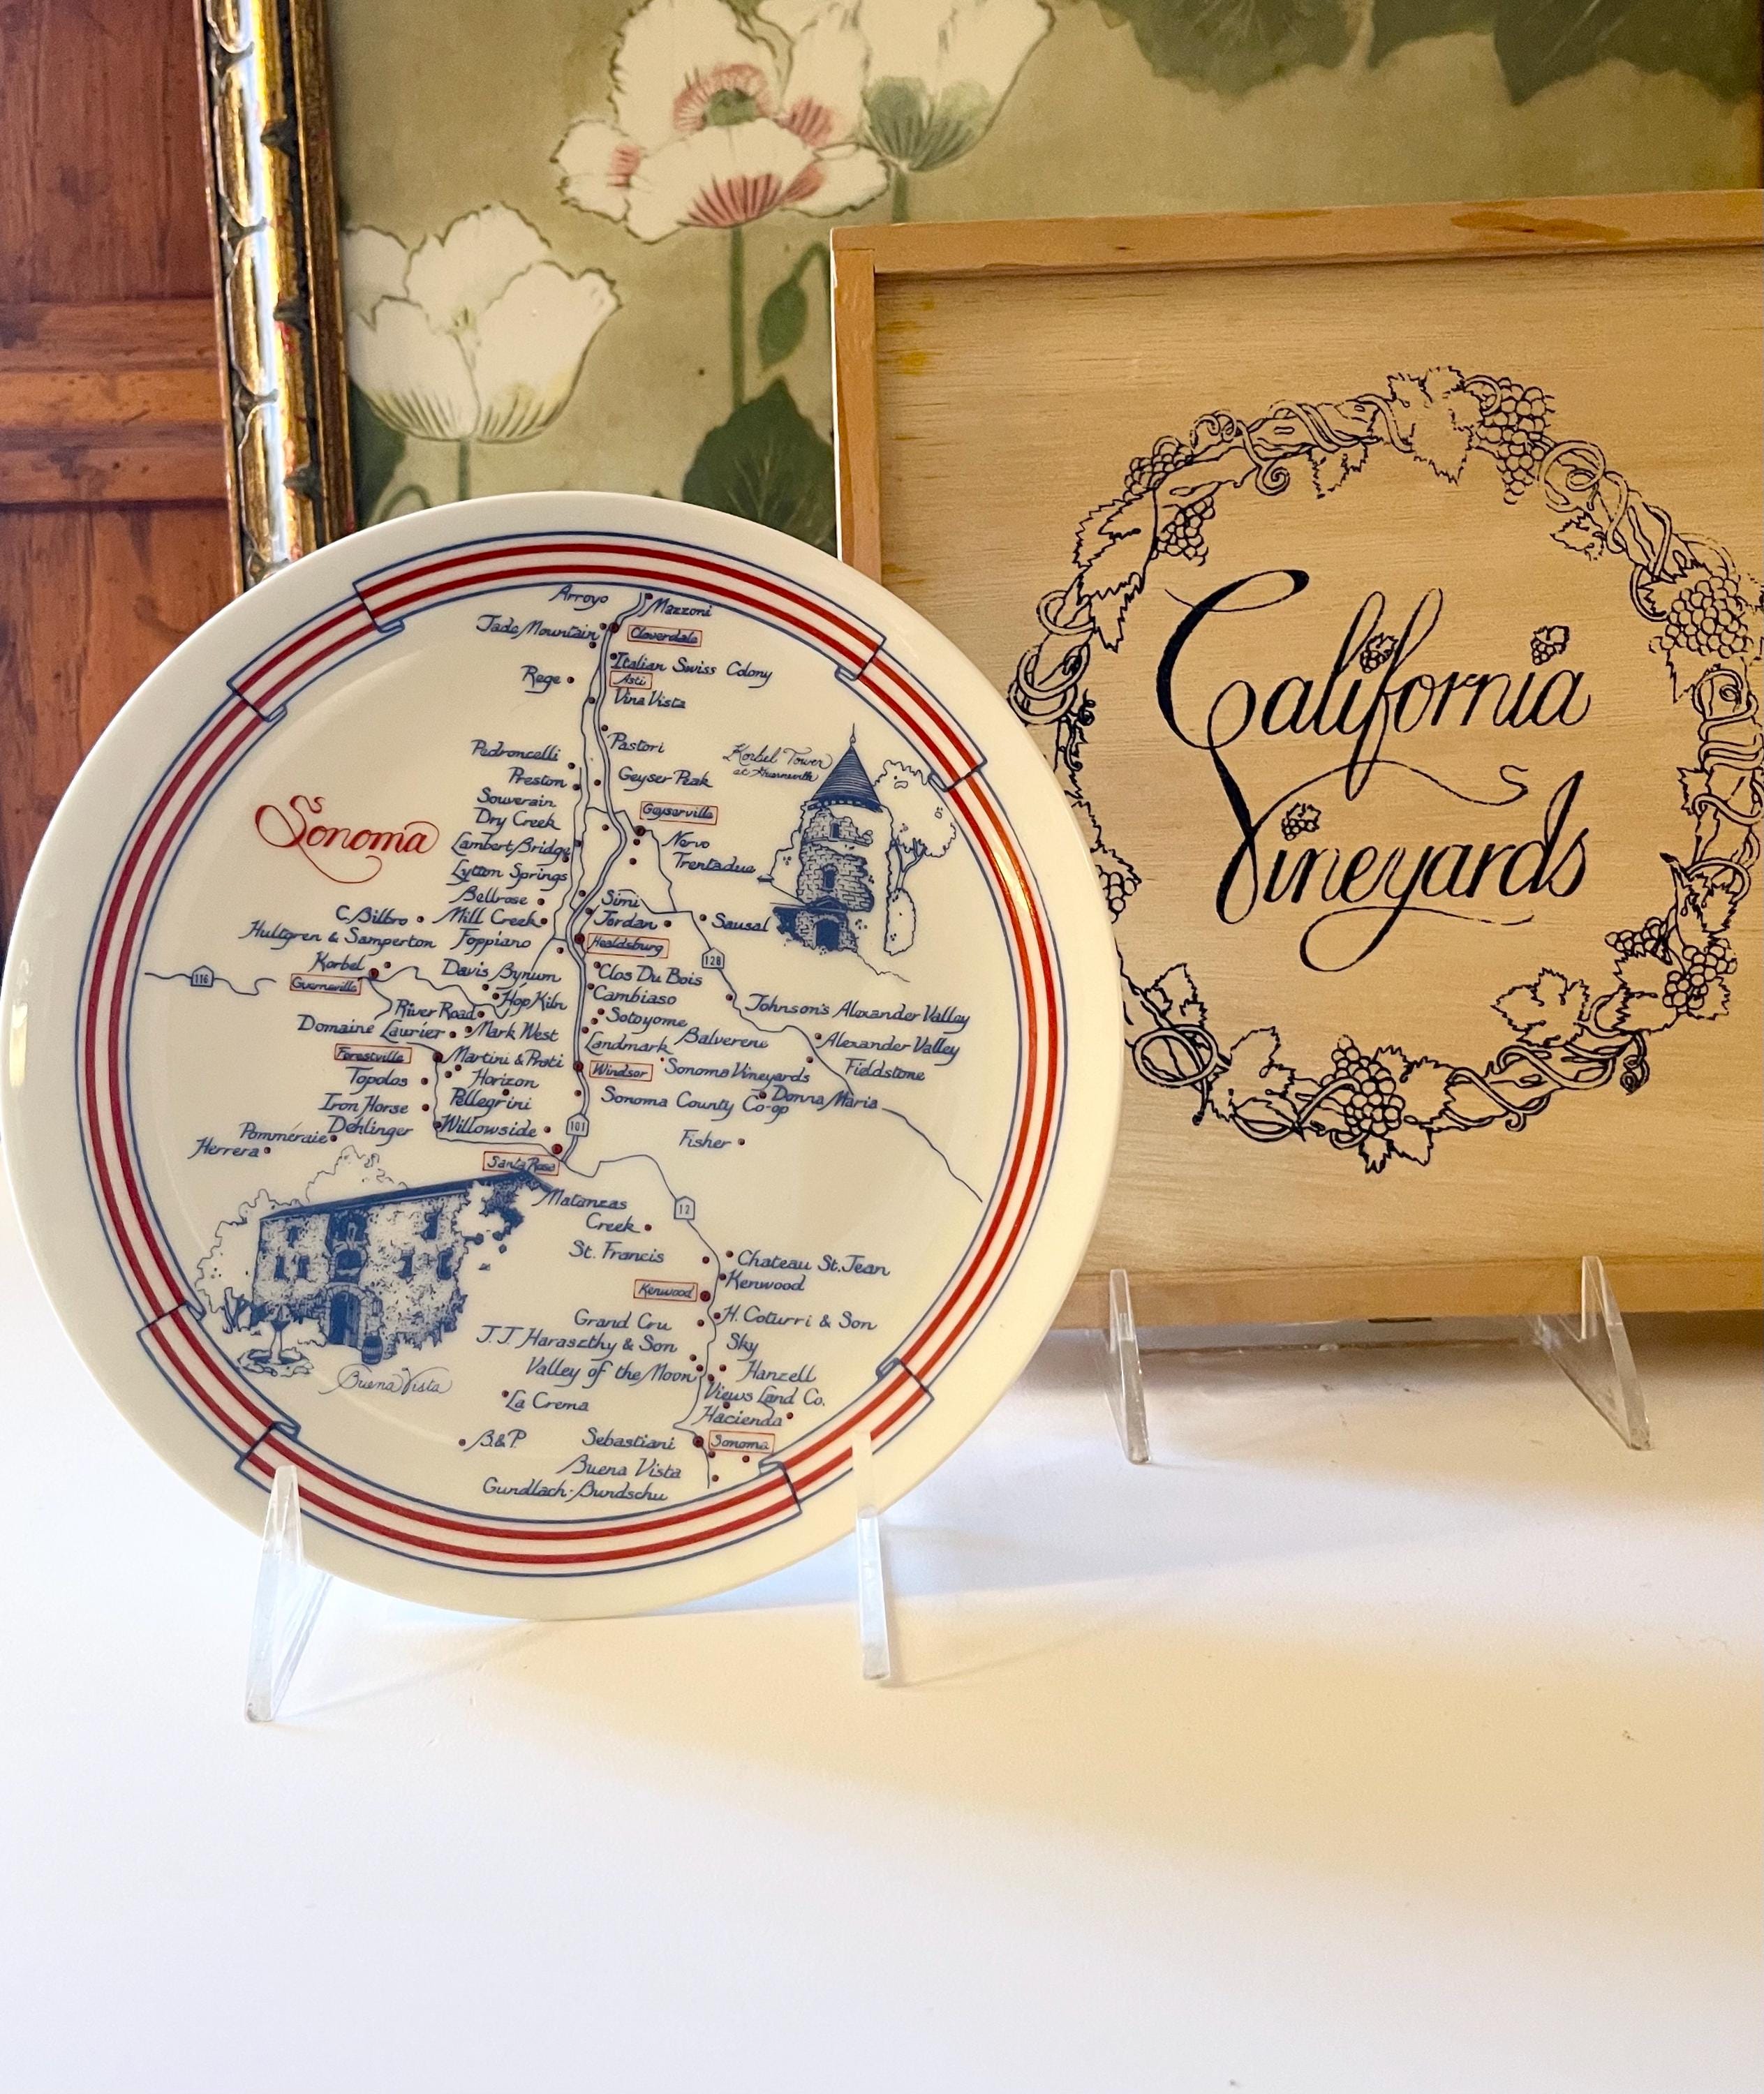 Sonoma
Arroyo
Mazzoni
Jade Mountain
Cloverdale
Italian Swiss Colony
Rege
Asti
Vina Vista
Pastori
Pedroncelli
Preston
Geyser Peak
Souverain
Dry Creek
Geyserville
Lambert Bridge
Nervo
Trentadue
Lytton Springs
Bellrose
Simi
C. Bilbro
Mill Creek
Jordan
Sausal
Hultgren & Samperton
Foppiano
Healdsburg
128
Korbel Tower
at Guerneville
Korbel
Guerneville
116
Davis Bynum
Clos Du Bois
Hop Kiln
Cambiaso
River Road
Sotoyome
Johnson's Alexander Valley
Domaine Laurier
Mark West
Landmark
Balverene
Alexander Valley
Forestville
Martini & Prati
Windsor
Sonoma Vineyards
Fieldstone
Topolos
Horizon
Iron Horse
Pellegrini
Sonoma County Co-op
Donna Maria
Dehlinger
Willowside
101
Pommeraie
Herrera
Fisher
Santa Rosa
Matanzas
Creek
12
St. Francis
Chateau St. Jean
Kenwood
Kenwood
Grand Cru
H. Coturri & Son
J.J. Haraszthy & Son
Sky
Valley of the Moon
Hanzell
Views Land Co.
La Crema
Hacienda
B&P
Sebastiani
Sonoma
Buena Vista
Gundlach-Bundschu
Buena Vista
California
Vineyards